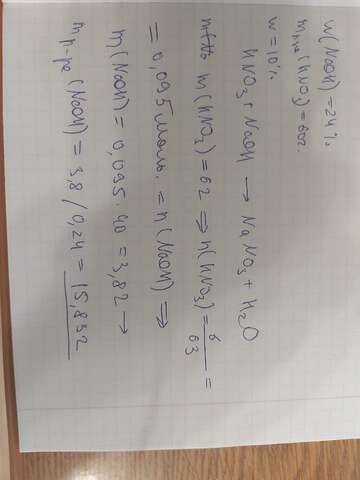 w(NaOH) = 24%
m р-ра (HNO3) = 60г.
w = 10%
HNO3 + NaOH → NaNO3 + H2O
m(HNO3) = 6г ⇒ n(HNO3) = 6/63 =
= 0,095 моль. = n(NaOH) ⇒
m(NaOH) = 0,095 · 40 = 3,8г →
m р-ра (NaOH) = 3,8 / 0,24 = 15,83г